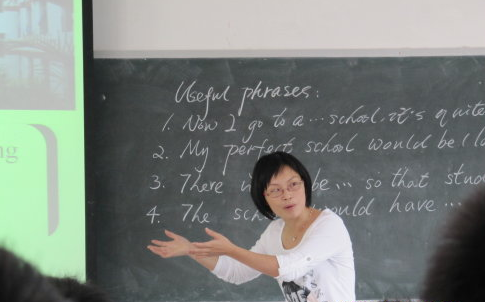 Useful phrases:
1. Now I go to a ... school. it's quite
2. My perfect school would be
3. There be ... so that stud
4. The sch would have ...
ng